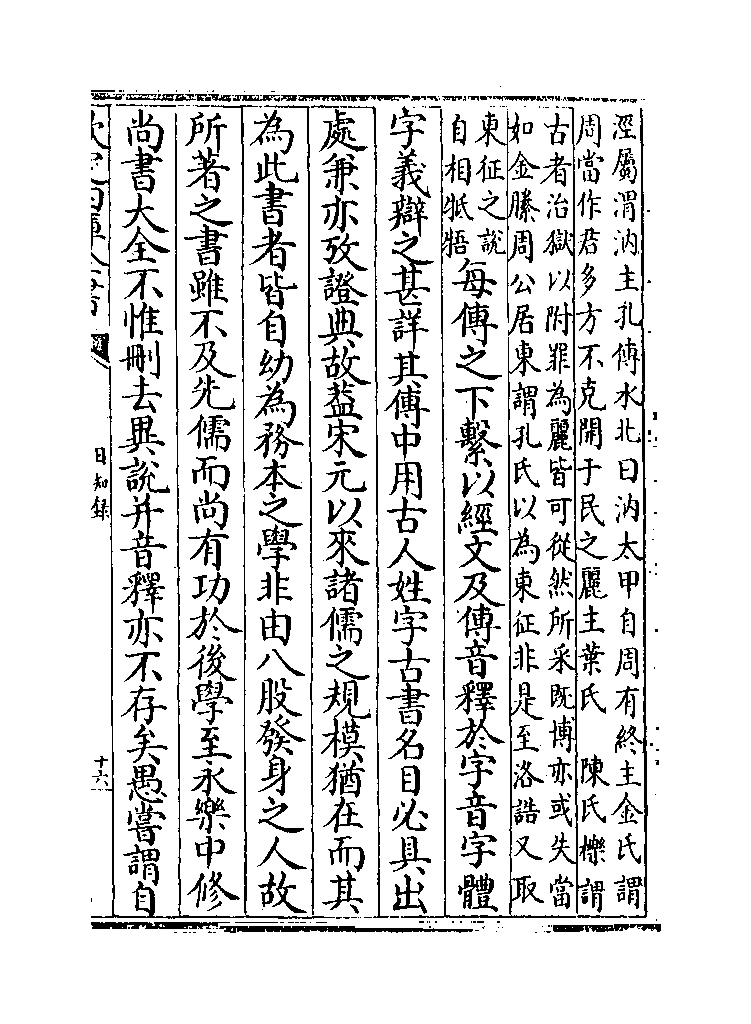 涇屬渭汭主孔傳水北曰汭太甲自周有終主金氏謂
周當作君多方不克開于民之麗主葉氏　陳氏櫟謂
古者治獄以附罪為麗皆可從然所采既博亦或失當
如金縢周公居東謂孔氏以為東征非是至洛誥又取
東征之説
自相牴牾
每傳之下繫以經文及傳音釋於字音字體
字義辯之甚詳其傳中用古人姓字古書名目必具出
處兼亦攷證典故葢宋元以來諸儒之規模猶在而其
為此書者皆自幼為務本之學非由八股發身之人故
所著之書雖不及先儒而尚有功於後學至永樂中修
尚書大全不惟刪去異說并音釋亦不存矣愚嘗謂自
欽定四庫全書
日知錄
十六